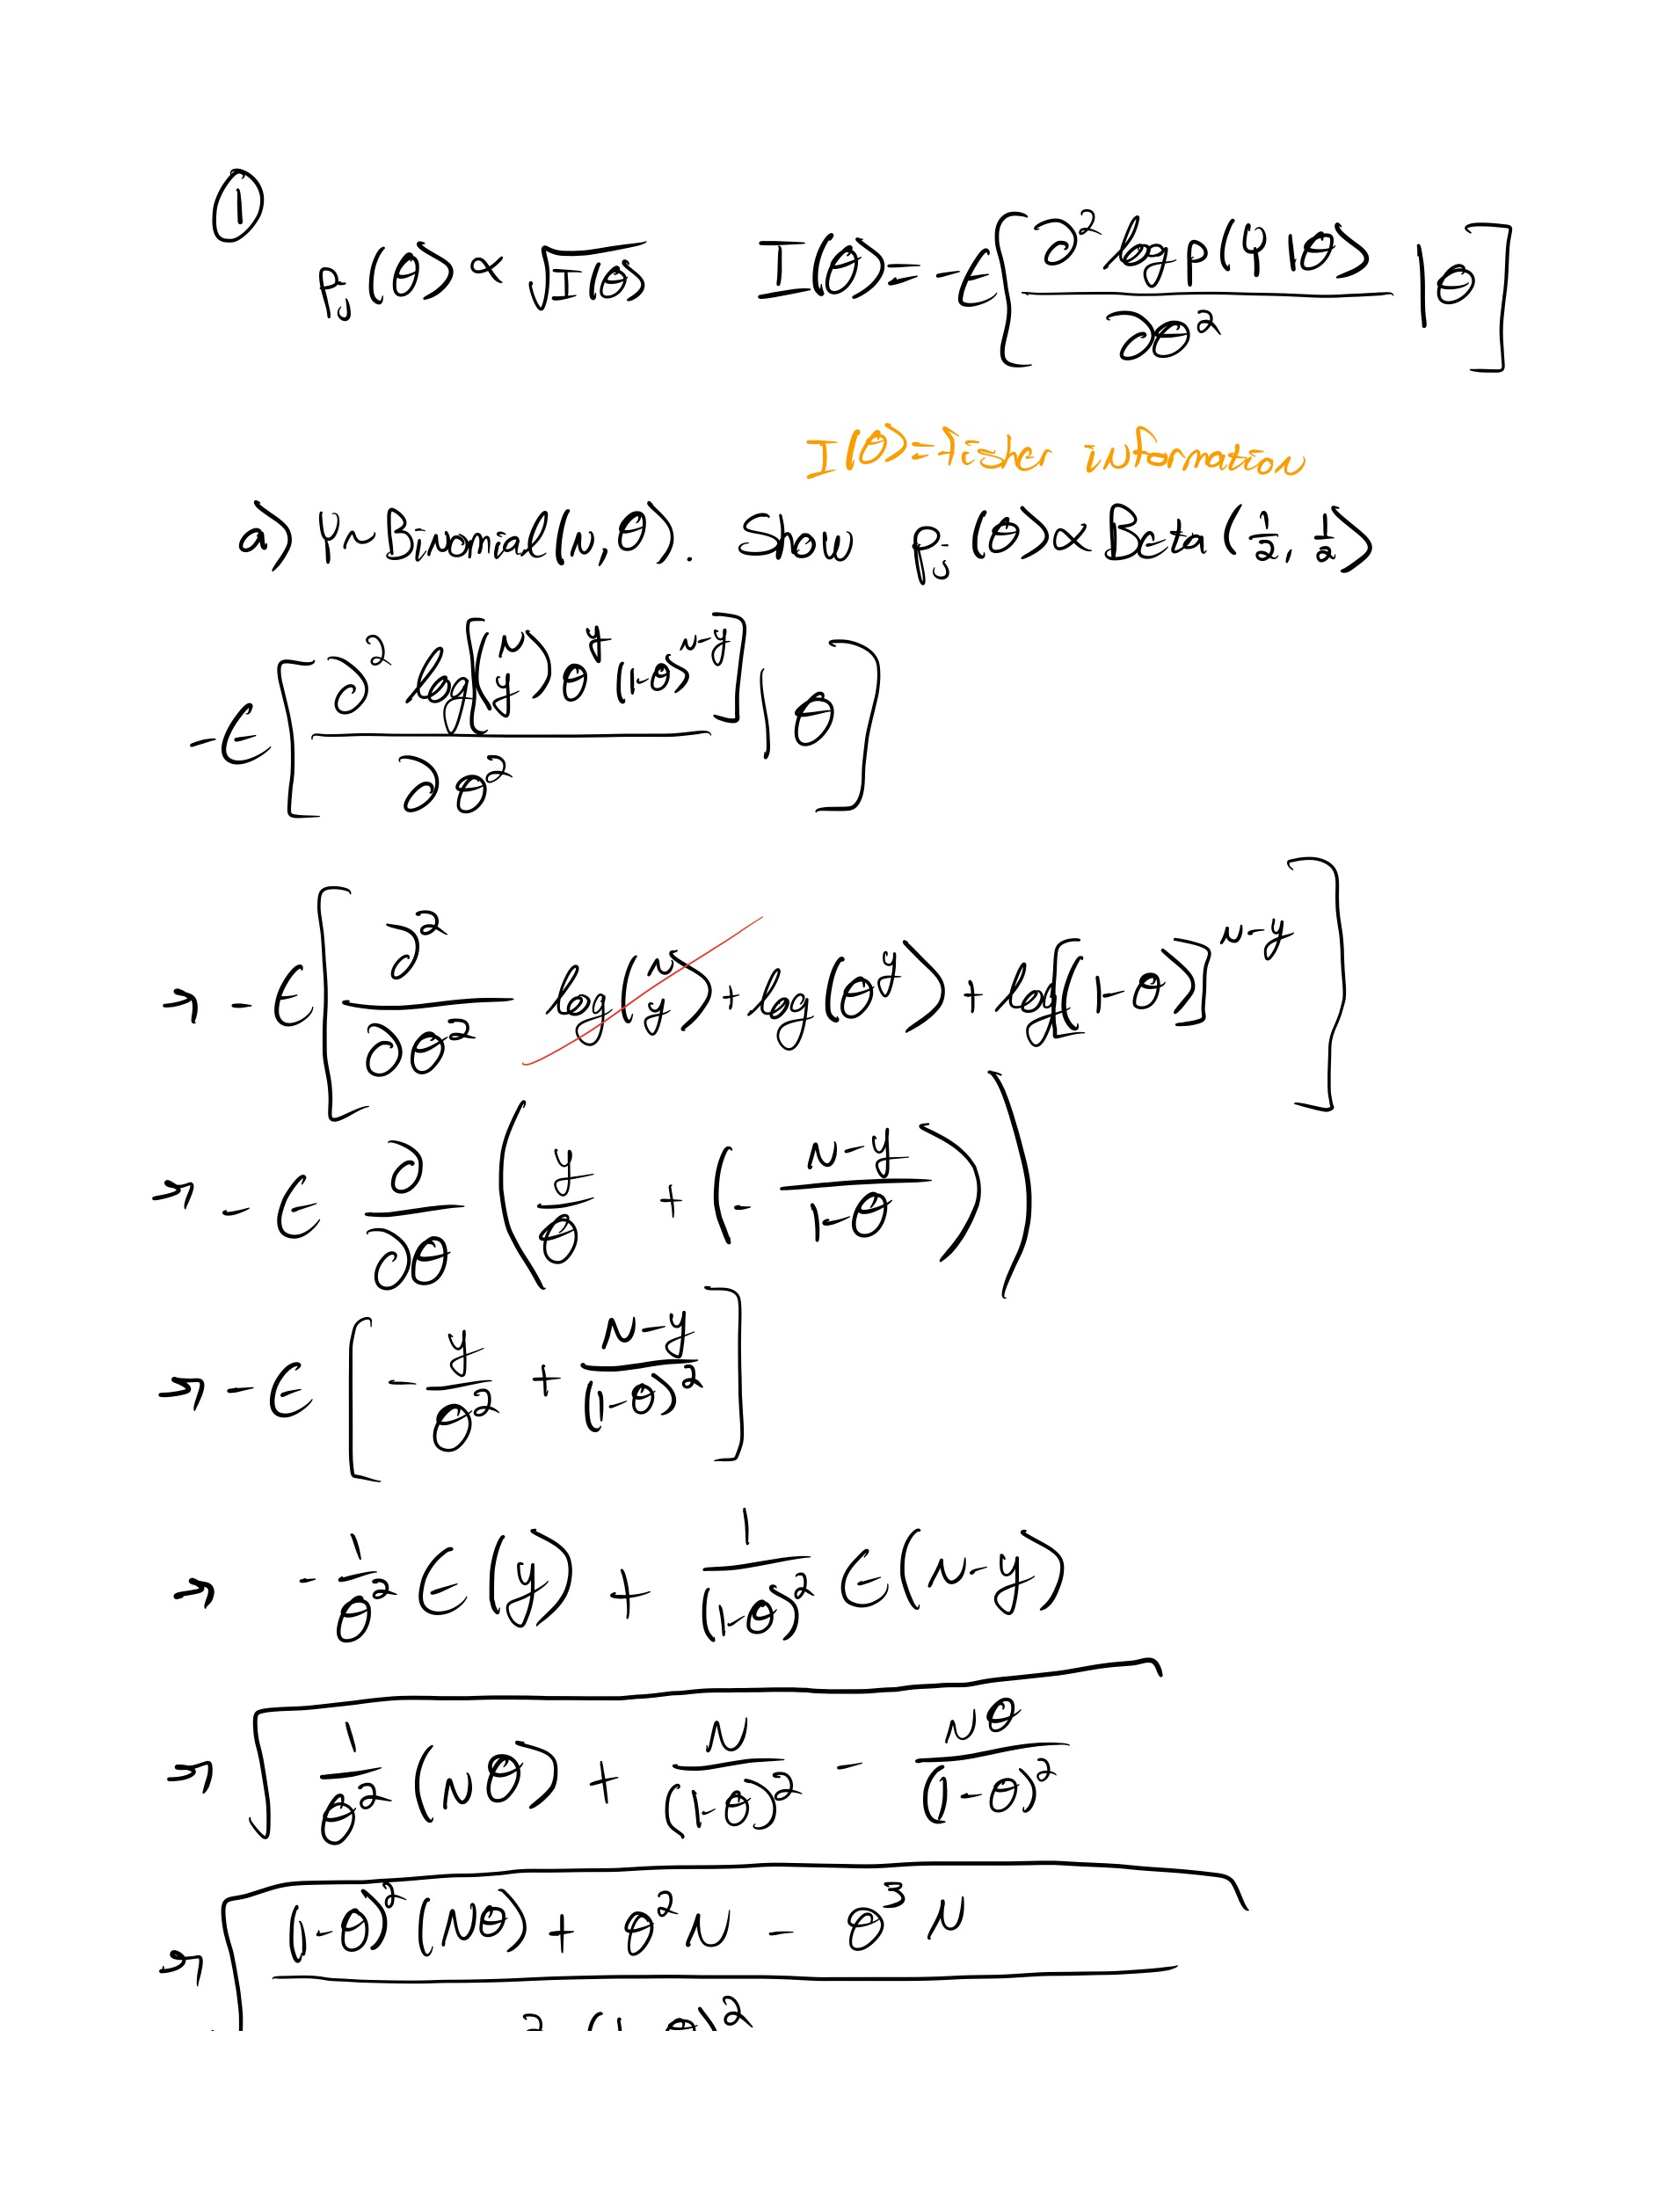 ①
p_j(θ) ∝ √I(θ)   I(θ) = -E[∂² log p(Y|θ) / ∂θ² | θ]
I(θ) = fisher information
a) Y ~ Binomial(n, θ). Show p_j(θ) ∝ Beta(1/2, 1/2)
-E[∂² log[(n y) θ^y (1-θ)^(n-y)] / ∂θ² | θ]
→ -E[∂²/∂θ² log(n y) + log(θ^y) + log[(1-θ)]^(n-y)]
→ -E ∂/∂θ (y/θ + (- (n-y)/(1-θ)))
→ -E[- y/θ² + (n-y)/(1-θ)²]
→ - 1/θ² E(y) + 1/(1-θ)² E(n-y)
→ √(1/θ² (nθ) + n/(1-θ)² - nθ/(1-θ)²)
→ √((1-θ)² (nθ) + θ² n - θ³ n / θ² (1-θ)²)